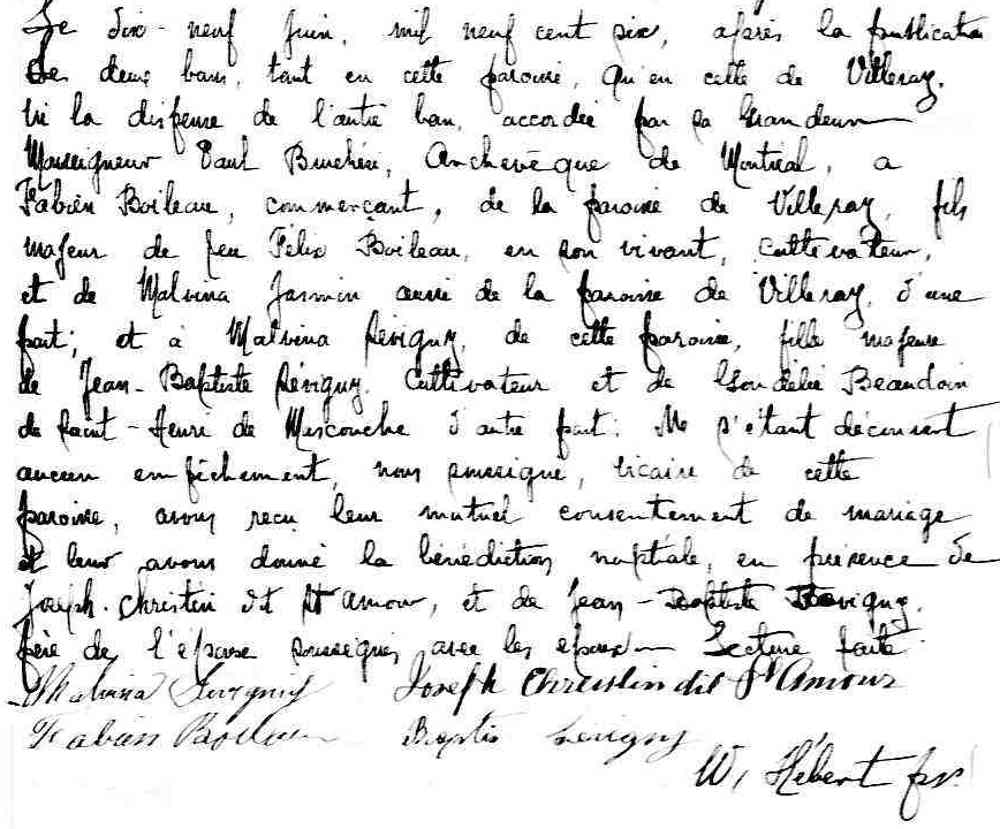 Le dix-neuf Juin, mil neuf cent six, après la publication
de deux bans, tant en cette paroisse, qu'en celle de Villeray.
Vu la dispense de l'autre ban, accordée par sa Grandeur
Monseigneur Paul Bruchési, Archevêque de Montréal, a
Fabien Boileau, commerçant, de la paroisse de Villeray, fils
majeur de feu Félix Boileau, en son vivant, cultivateur,
et de Malvina Jasmin aussi de la paroisse de Villeray, d'une
part; et a Malvina Lévigny, de cette paroisse, fille majeure
de Jean-Baptiste Lévigny, cultivateur et de Beaudoin
de Saint-Henri de Mascouche d'autre part; Ne s'étant découvert
aucun empêchement, nous soussigné, vicaire de cette
paroisse, avons reçu leur mutuel consentement de mariage
et leur avons donné la bénédiction nuptiale, en présence de
Joseph Chrestien dit St Amour, et de Jean-Baptiste Levigny,
père de l'épouse soussignés avec les époux Lecture faite
Malvina Levigny Joseph Chrestien dit St Amour
Fabien Boileau Baptis Levigny
W. Hébert ptr.